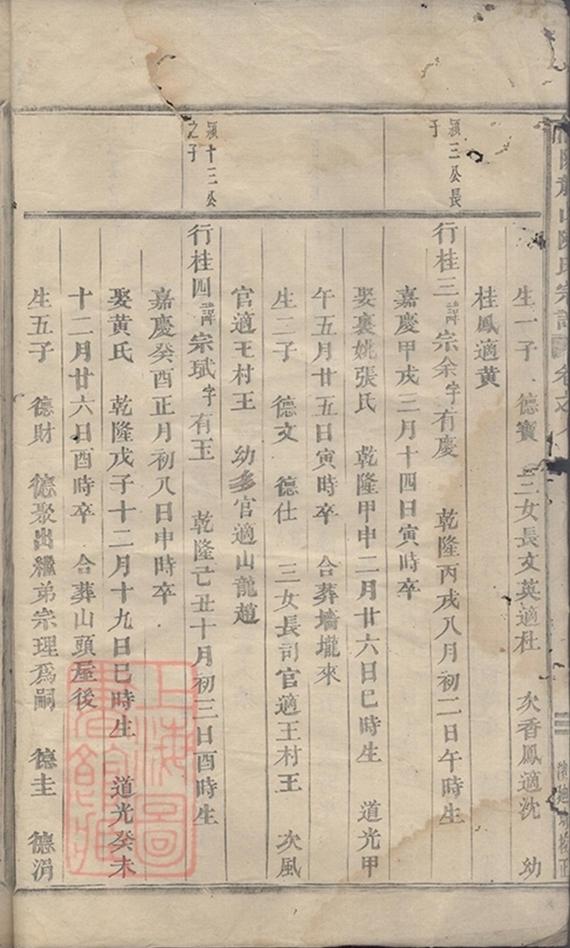 龍山陳氏宗譜 卷之八
生一子 德寶 三女長文英適杜 次香鳳適沈 幼
桂鳳適黄
穎三公長
子
行桂三諱宗余字有慶 乾隆丙戌八月初二日午時生
嘉慶甲戌三月十四日寅時卒
娶裏姚張氏 乾隆甲申二月廿六日巳時生 道光甲
午五月廿五日寅時卒 合葬墻壠來
生二子 德文 德仕 三女長司官適王村王 次風
官適王村王 幼多官適山龍趙
穎十三公
之子
行桂四諱宗珷字有王 乾隆己丑十月初三日酉時生
嘉慶癸酉正月初八日申時卒
娶黄氏 乾隆戊子十二月十九日巳時生 道光癸未
十二月廿六日酉時卒 合葬山頭屋後
生五子 德財 德聚出繼弟宗理爲嗣 德圭 德涓
上海圖
書館藏